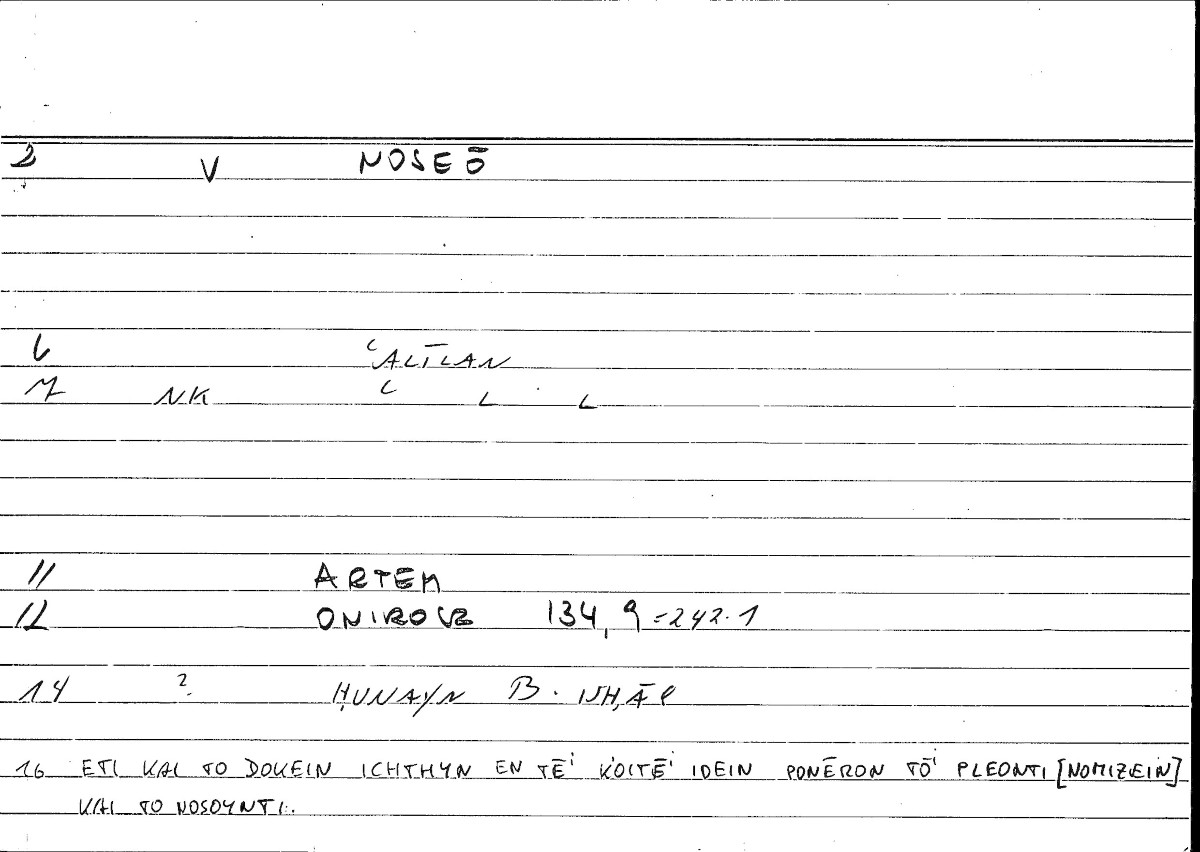 2 V NOSEŌ
6 ʿALĪLAN
7 NK ʿ L L
11 ARTEM
12 ONIROCR 134,9 =242.1
14 ? ḤUNAYN B. ISḤĀQ
16 ETI KAI TO DOKEIN ICHTHYN EN TĒⁱ KOITĒⁱ IDEIN PONĒRON TŌⁱ PLEONTI [NOMIZEIN]
KAI TO NOSOYNTI.